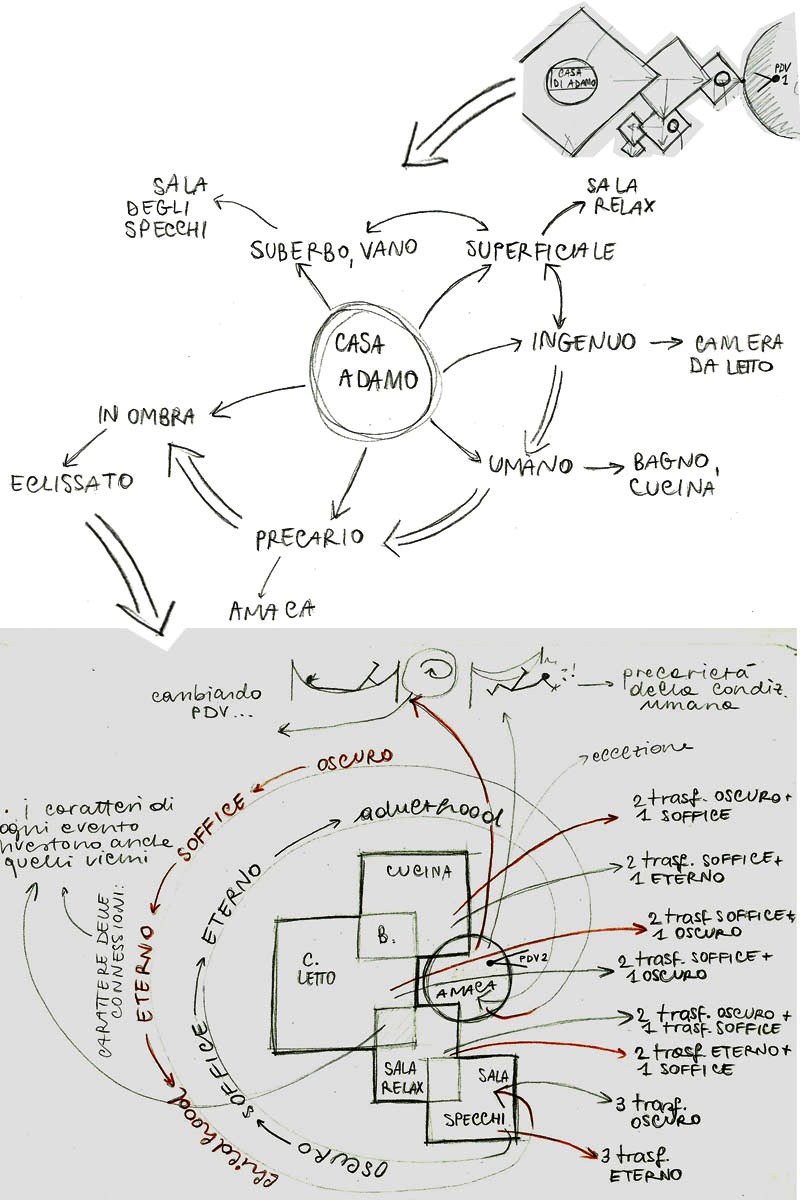 CASA
DI ADAMO
PDV
1
SALA
DEGLI
SPECCHI
SALA
RELAX
SUBERBO, VANO
SUPERFICIALE
CASA
ADAMO
INGENUO
CAMERA
DA LETTO
IN OMBRA
ECLISSATO
UMANO
BAGNO,
CUCINA
PRECARIO
AMACA
cambiando
PDV...
precarietà
della condiz.
umana
eccezione
OSCURO
SOFFICE
ETERNO
childhood
adulthood
ETERNO
SOFFICE
OSCURO
. i caratteri di
ogni evento
investono anche
quelli vicini
CARATTERE DELLE
CONNESSIONI:
CUCINA
B.
C.
LETTO
PDV2
AMACA
SALA
RELAX
SALA
SPECCHI
2 trasf. OSCURO +
1 SOFFICE
2 trasf. SOFFICE +
1 ETERNO
2 trasf SOFFICE +
1 OSCURO
2 trasf. SOFFICE +
1 OSCURO
2 trasf. OSCURO +
1 trasf. SOFFICE
2 trasf ETERNO +
1 SOFFICE
3 trasf.
OSCURO
3 trasf.
ETERNO